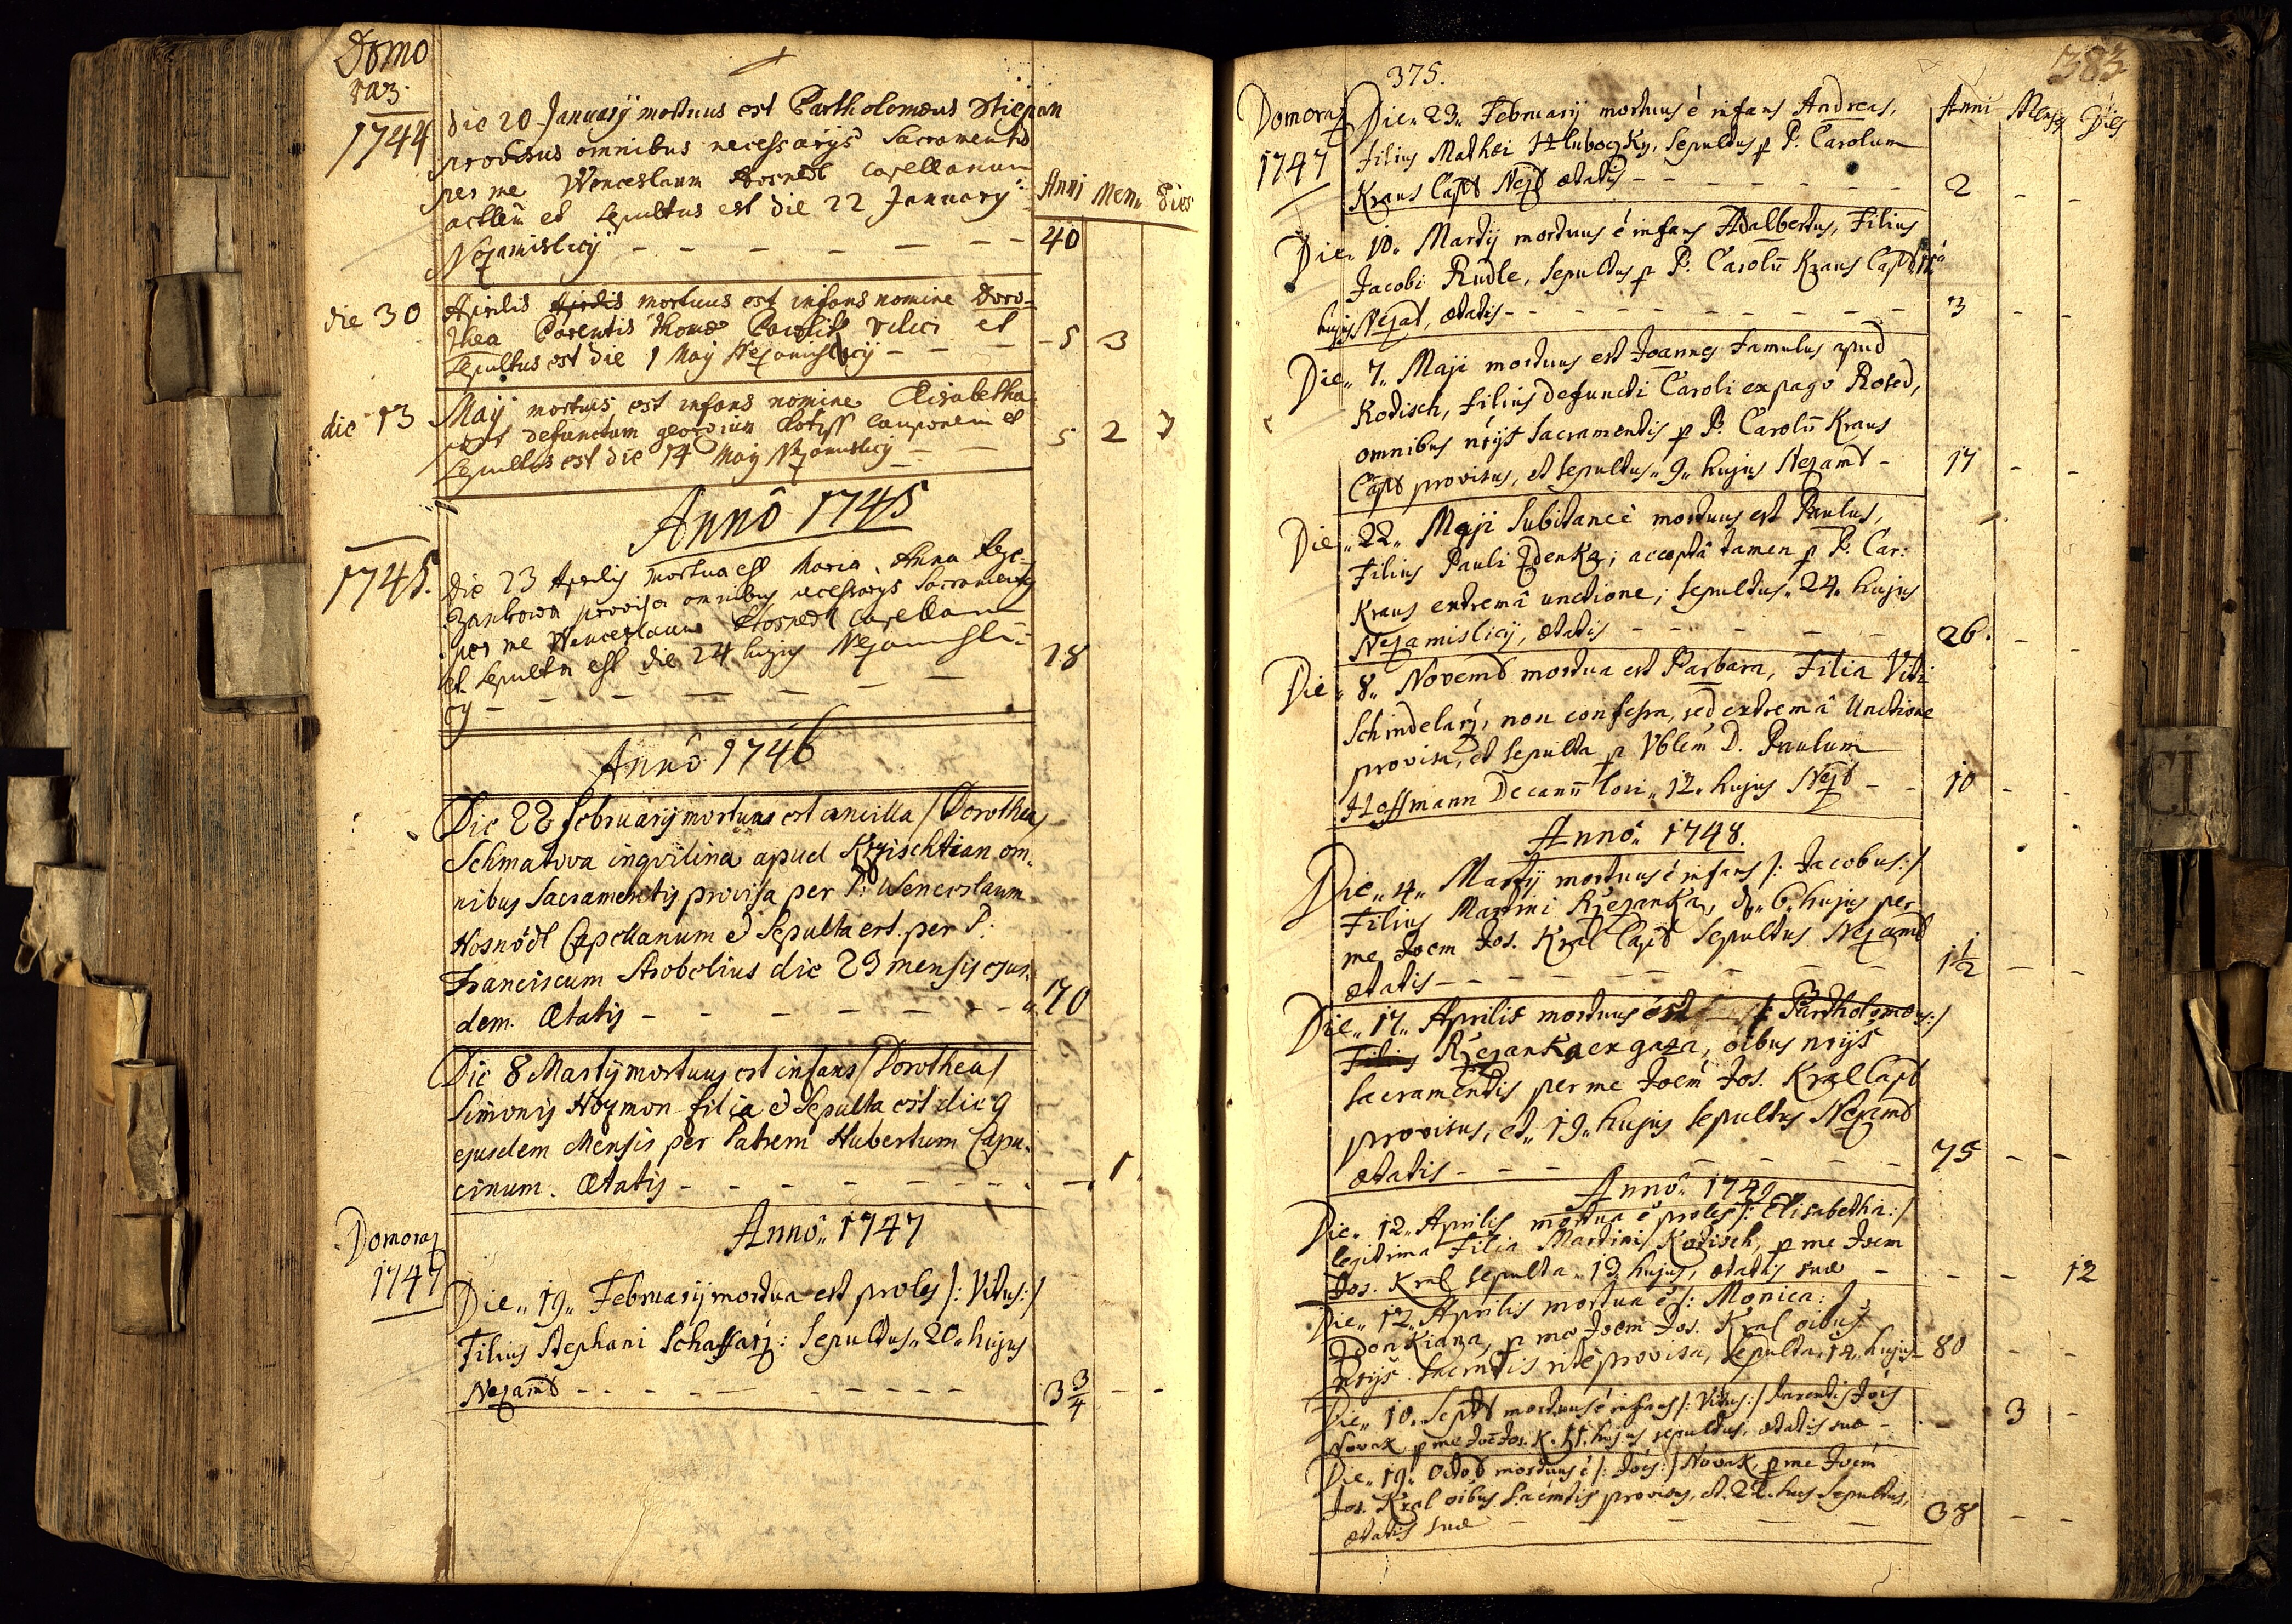 Domo
raz.
1744
die 20 January mortuus est Bartholomæus Stiepan
provisus omnibus necessarys Sacramentis
per me Wenceslaum Hosnedl Capellanum
et Sepultus est die 22 January
Nezamislicÿ
Anni Men. Dies
40
die 30 Aprilis Aprilis mortuus est infans nomine Doro=
thea Parentis Thomæ vilici et
Sepultus est die 1 Maÿ Nezamislicÿ
5 3
die 13 Maÿ mortuus est infans nomine Elisabetha
post defunctum georgium Cauponem et
Sepultus est die 14 Maÿ Nezamislicÿ
5 2
Annô 1745
1745.
Die 23 Aprilis mortua est Maria Anna Rze=
zankowa provisa omnibus necessarys Sacramentis
per me Wenceslaum Hosnedl Capellanum
et Sepulta est die 24 hujus Nezamisli=
cÿ
18
Annô 1746
Die 22 februarÿ mortuus est ancilla /Dorothea/
Schmatova inqvilina apud Krzischtian om=
nibus Sacramentis provisa per P: Wenceslaum
Hosnödl Capellanum & Sepulta est per P:
Franciscum Strobelius die 23 mensis ejus=
dem. Ætatis
70
Die 8 Martÿ mortuus est infans /Dorothea/
Simonis Hozmon filia & Sepulta est die 9
ejusdem Mensis per Patrem Hubertum Capu=
cinum. Ætatis
1
Domoraz
1747
Annô 1747
Die 19 Februarÿ mortua est proles /: Vitus:/
Filius Stephani Schaffarz: Sepultus 20 hujus
Nezamt
3 3/4
375.
383
Domoraz
1747
Anni Menses Dies
Die 23 Februarÿ mortuus ê infans Andreas,
Filius Mathei Hluboczky, Sepultus p P. Carolum
Kraus Capt Nezt ætatis
2
Die 10 Martÿ mortuus ê infans Adalbertus, Filius
Jacobi Rudle, Sepultus p P. Carolū Kraus Capt
hujus Nezat, ætatis
3
Die 7 Maji mortuus est Joannes Famulus apud
Kotisch, Filius defuncti Caroli ex pago Rosed,
omnibus nrÿs Sacramentis p P. Carolū Kraus
Capt provisus, et Sepultus 9 hujus Nezamt
17
Die 22 Maji Subitanee mortuus est Paulus,
Filius Pauli Zdenka; acceptâ tamen p P. Car:
Kraus extremâ unctione; Sepultus 24 hujus
Nezamislicÿ, ætatis
26.
Die 8 Novemb mortua est Barbara, Filia Viti
Schindelarz, non confessa, sed extremâ Unctione
provisa, et Sepulta p Vblem D. Paulum
Hoffmann Decanū loci 12 hujus Nezt
10
Annô 1748.
Die 4 Martÿ mortuus ê infans /: Jacobus:/
Filius Martini Rzezanka, & 6 hujus per
me Joem Jos. Kral Capt Sepultus Nezamt
ætatis
1 1/2
Die 17 Aprilis mortuus est /: Bartholomæus:/
Filius Rzezanka ex gaza, oibus nrÿs
Sacramentis per me Joem Jos. Kral Capt
provisus, et 19 hujus Sepultus Nezamt
ætatis
75
Annô 1749
Die 12 Aprilis mortua ê proles /: Elisabetha:/
legitima Filia Martini Kotisch, p me Joem
Jos. Kral Sepulta 13 hujus, ætatis suæ
12
Die 12 Aprilis mortua ê /: Monica:/
Zdenkiana, p me Joem Jos. Kral oibus
nrÿs Sacmtis rite provisa, Sepulta 14 hujus
80
Die 10 Septb mortuus ê infans /: Vitus:/ Parentis Jois
Novak p me Joe Jos. K. 11 hujus sepultus, ætatis suæ
3
Die 19 Octob mortuus ê /: Jois:/ Novak, p me Joem
Jos. Kral oibus Sacmtis provisus, et 22 hujus Sepultus,
ætatis suæ
38